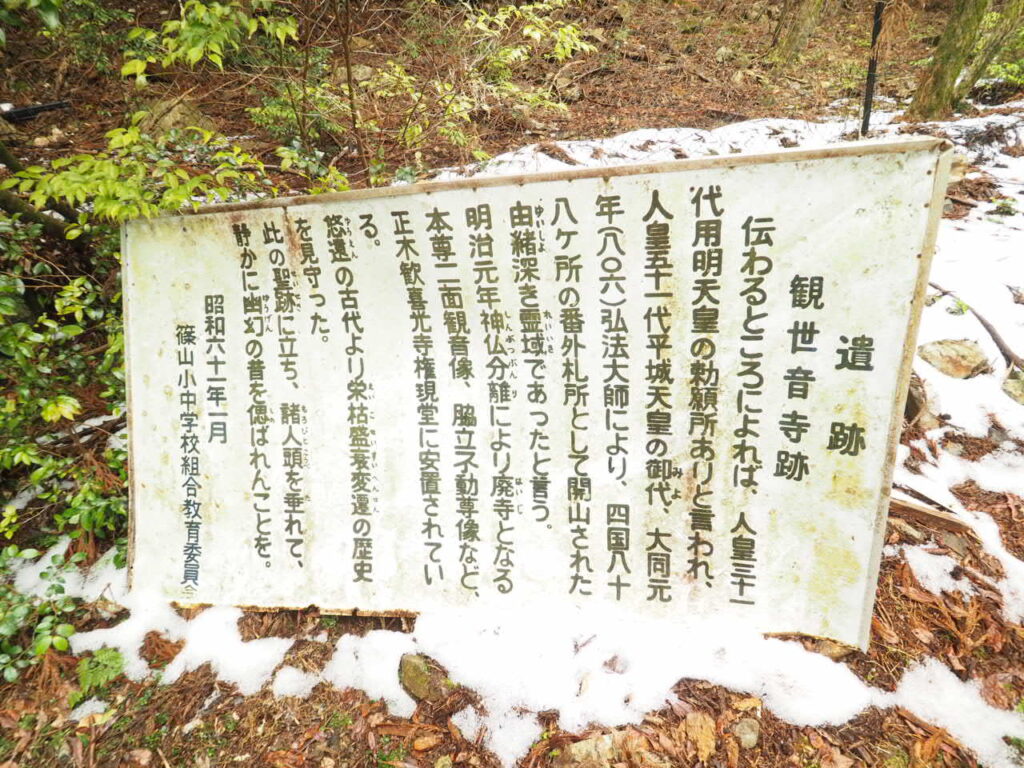 遺跡
観世音寺跡
伝わるところによれば、人皇三十一
代用明天皇の勅願所ありと言われ、
人皇五十一代平城天皇の御代、大同元
年(八〇六)弘法大師により、四国八十
八ケ所の番外札所として開山された
由緒深き霊域であったと言う。
明治元年神仏分離により廃寺となる
本尊二面観音像、脇立不動尊像など、
正木歓喜光寺権現堂に安置されてい
る。
悠遠の古代より栄枯盛衰変遷の歴史
を見守った。
此の聖跡に立ち、諸人頭を垂れて、
静かに幽幻の昔を偲ばれんことを。
昭和六十一年一月
篠山小中学校組合教育委員会